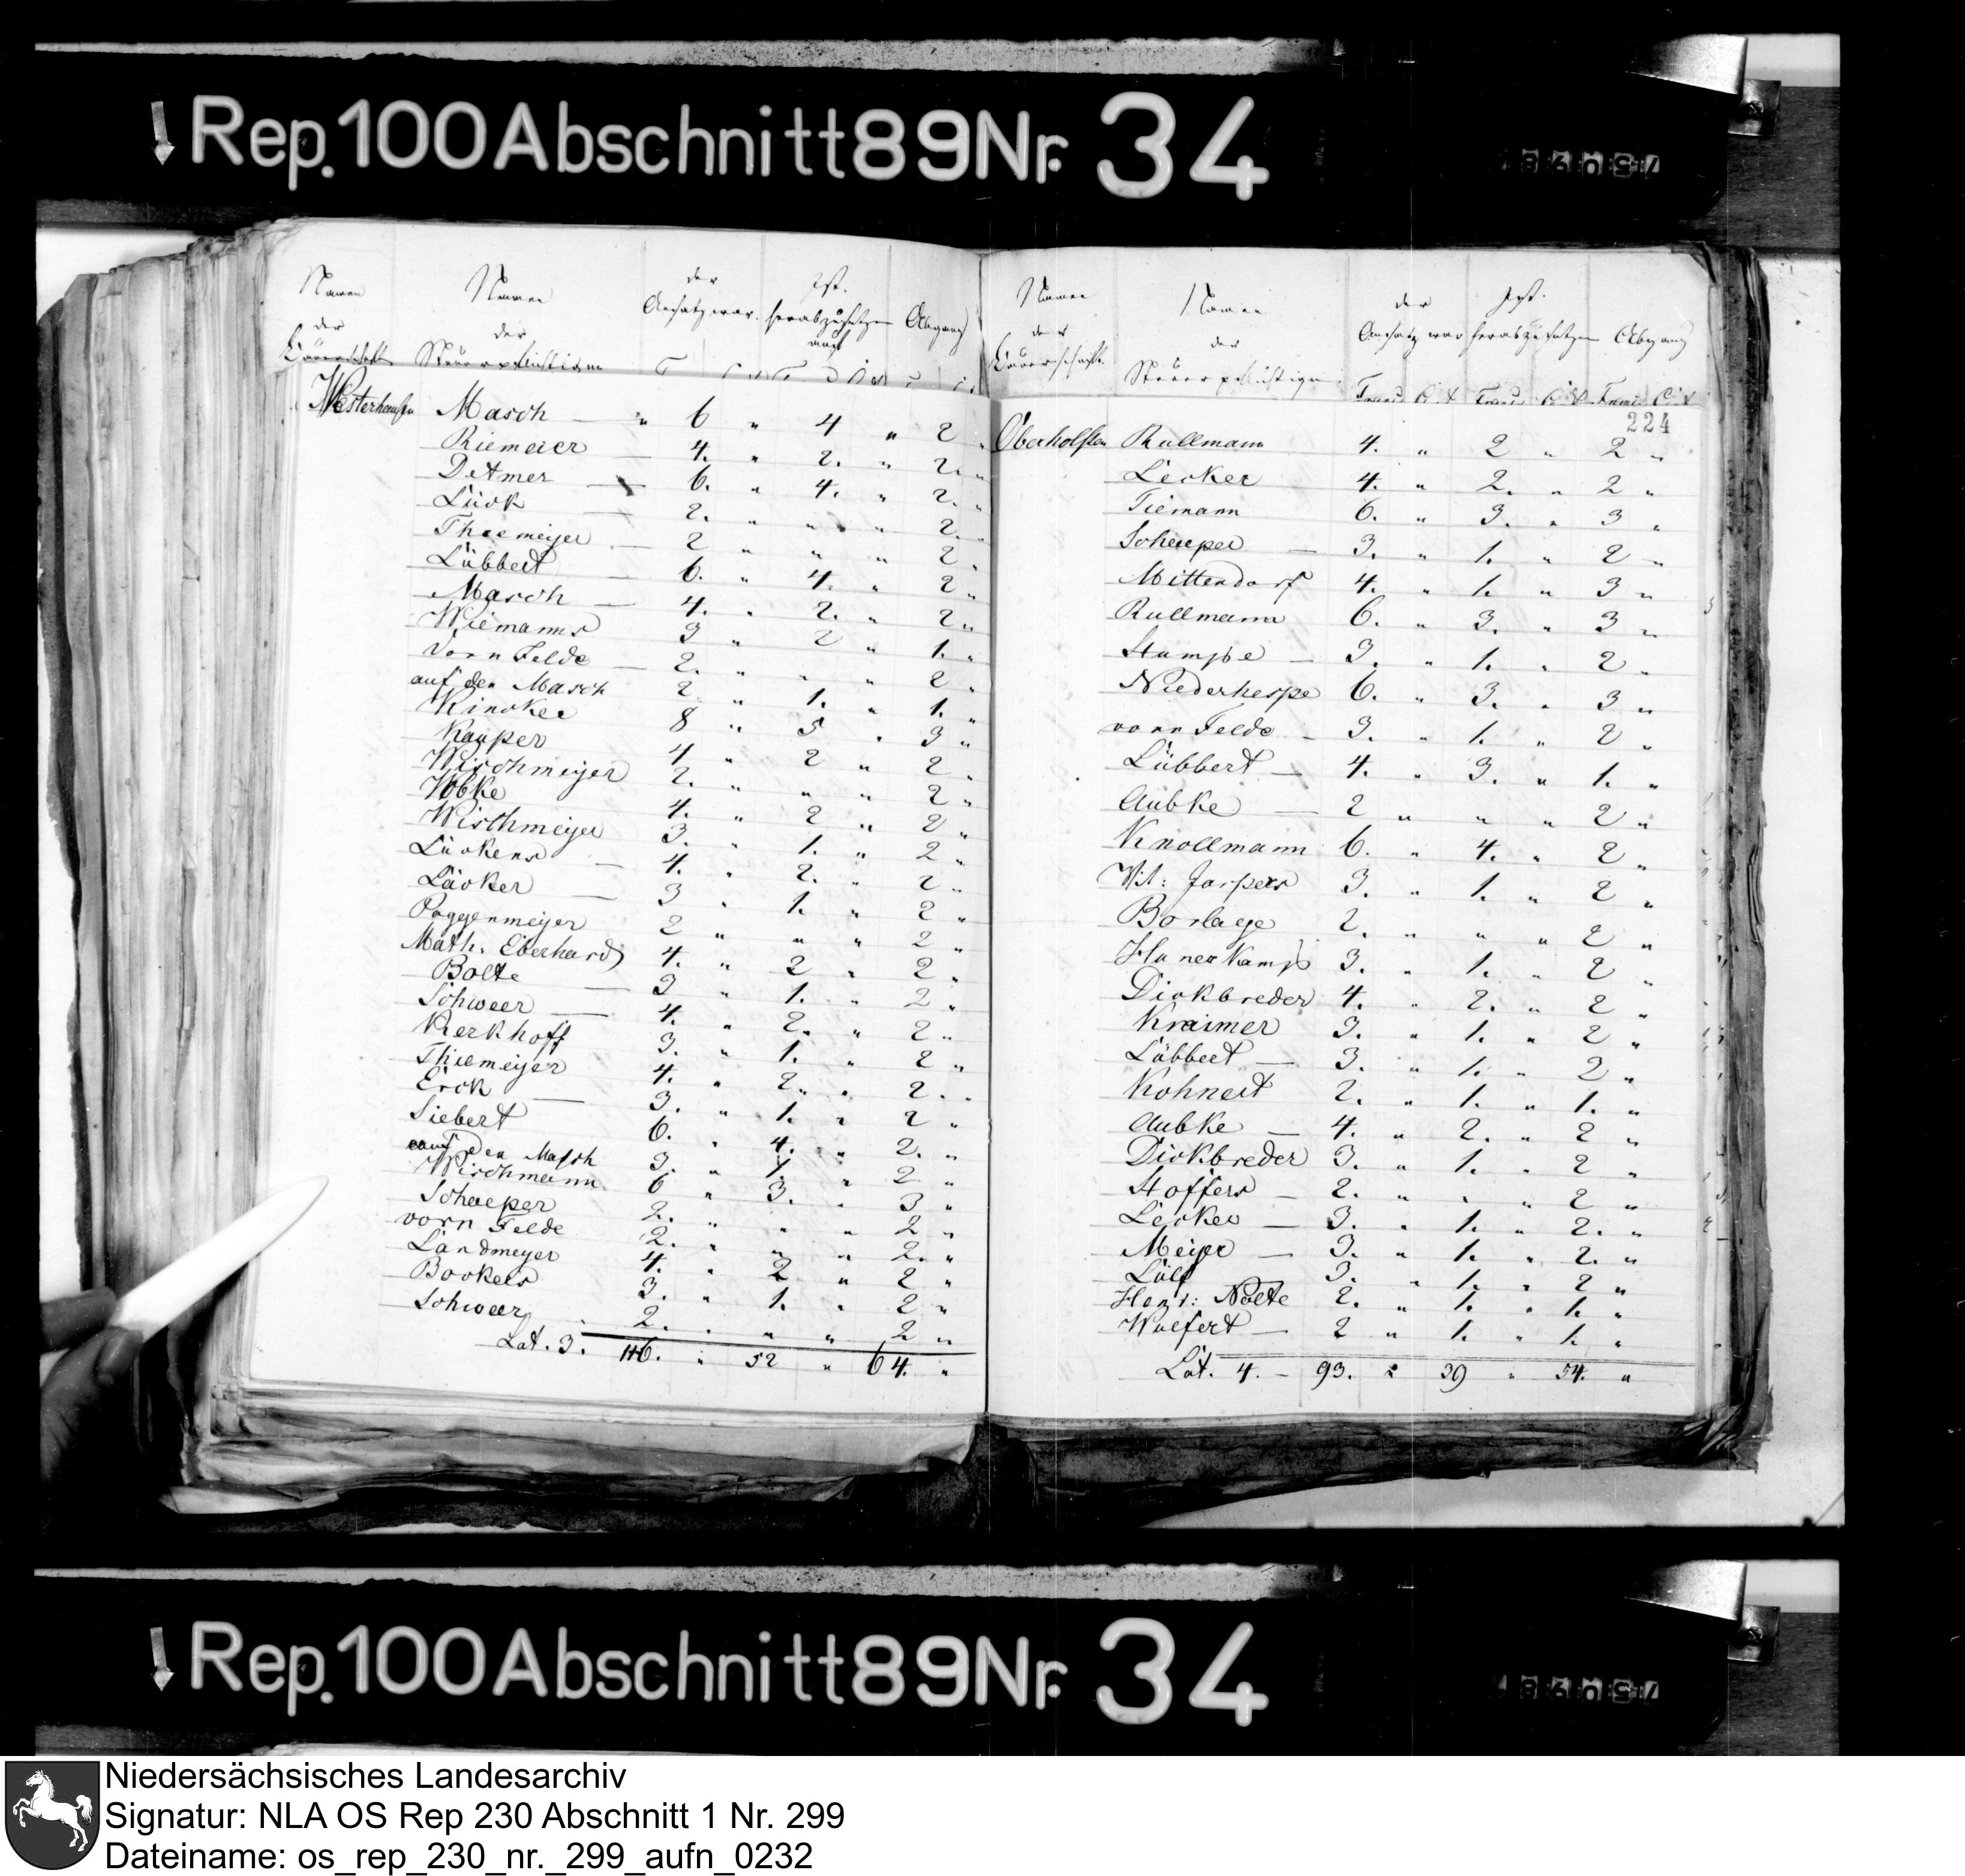 Rep. 100 Abschnitt 89 Nr. 34
Namen der Bauerschaft Namen der Steuerpflichtigen der Ansatz war. Ist. herabzusetzen auf Abgang
Westerhausen Masch — " 6 " 4 " 2 "
Riemeier — 4. " 2. " 2. "
Detmer — 6. " 4. " 2. "
Lück — 2. " " " 2. "
Thiemeijer — 2 " " " 2 "
Lübbert — 6. " 4. " 2 "
Masch — 4. " 2. " 2 "
Wiemanns 3 " 2 " 1. "
vorn Felde — 2. " " " 2 "
auf der Masch 2 " 1. " 1. "
Kincker 8 " 5 " 3 "
Kauper 4 " 2 " 2 "
Wischmeijer 2. " " " 2 "
Wobke 4. " 2 " 2 "
Wischmeijer 3. " 1. " 2 "
Lückens — 4. " 2. " 2 "
Läcker — 3 " 1. " 2 "
Poggenmeijer 2 " " " 2 "
Math. Eberhard 4. " 2 " 2 "
Bolte — 3 " 1. " 2 "
Schweer — 4. " 2. " 2 "
Kerkhoff 3. " 1. " 2 "
Thiemeijer 4. " 2. " 2. "
Erck — 3. " 1. " 2 "
Siebert 6. " 4. " 2. "
auf der Masch 3. " 1. " 2 "
Wischmann 6 " 3. " 3 "
Schaeper 2. " " " 2 "
vorn Felde 2. " " " 2. "
Landmeyer 4. " 2 " 2 "
Bockers 3. " 1. " 2 "
Schweer 2. " " " 2 "
Lat. 3. 116. " 52 " 64. "
Namen der Bauerschaft Namen der Steuerpflichtigen der Ansatz war Ist. herabzusetzen Abgang
Francs Ct Francs Ct Francs Ct
224
Oberholsten Rullmann 4. " 2 " 2 "
Lecker 4. " 2. " 2 "
Tiemann 6. " 3. " 3 "
Schaeper — 3. " 1. " 2 "
Mittendorf 4. " 1. " 3 "
Rullmann 6. " 3. " 3 "
Stumpe — 3. " 1. " 2 "
Niederhespe 6. " 3. " 3 "
vorn Felde — 3. " 1. " 2 "
Lübbert — 4. " 3. " 1. "
Aubke — 2 " " " 2 "
Knollmann 6. " 4. " 2 "
Wit: Jaspers 3. " 1. " 2 "
Borlage 2. " " " 2 "
Hanerkamp 3. " 1. " 2 "
Dickbreder 4. " 2. " 2 "
Kraimer 3. " 1. " 2 "
Lübbert — 3. " 1. " 2 "
Kohnert 2. " 1. " 1. "
Aubke — 4. " 2. " 2 "
Dickbreder 3. " 1. " 2 "
Stoffers — 2. " " " 2 "
Lecker — 3. " 1. " 2. "
Meijer — 3. " 1. " 2. "
Lülf 3. " 1. " 2 "
Henr: Nolte 2. " 1. " 1. "
Wulfert — 2 " 1. " 1. "
Lat. 4. — 93. " 39 " 54. "
Rep. 100 Abschnitt 89 Nr. 34
Niedersächsisches Landesarchiv
Signatur: NLA OS Rep 230 Abschnitt 1 Nr. 299
Dateiname: os_rep_230_nr._299_aufn_0232